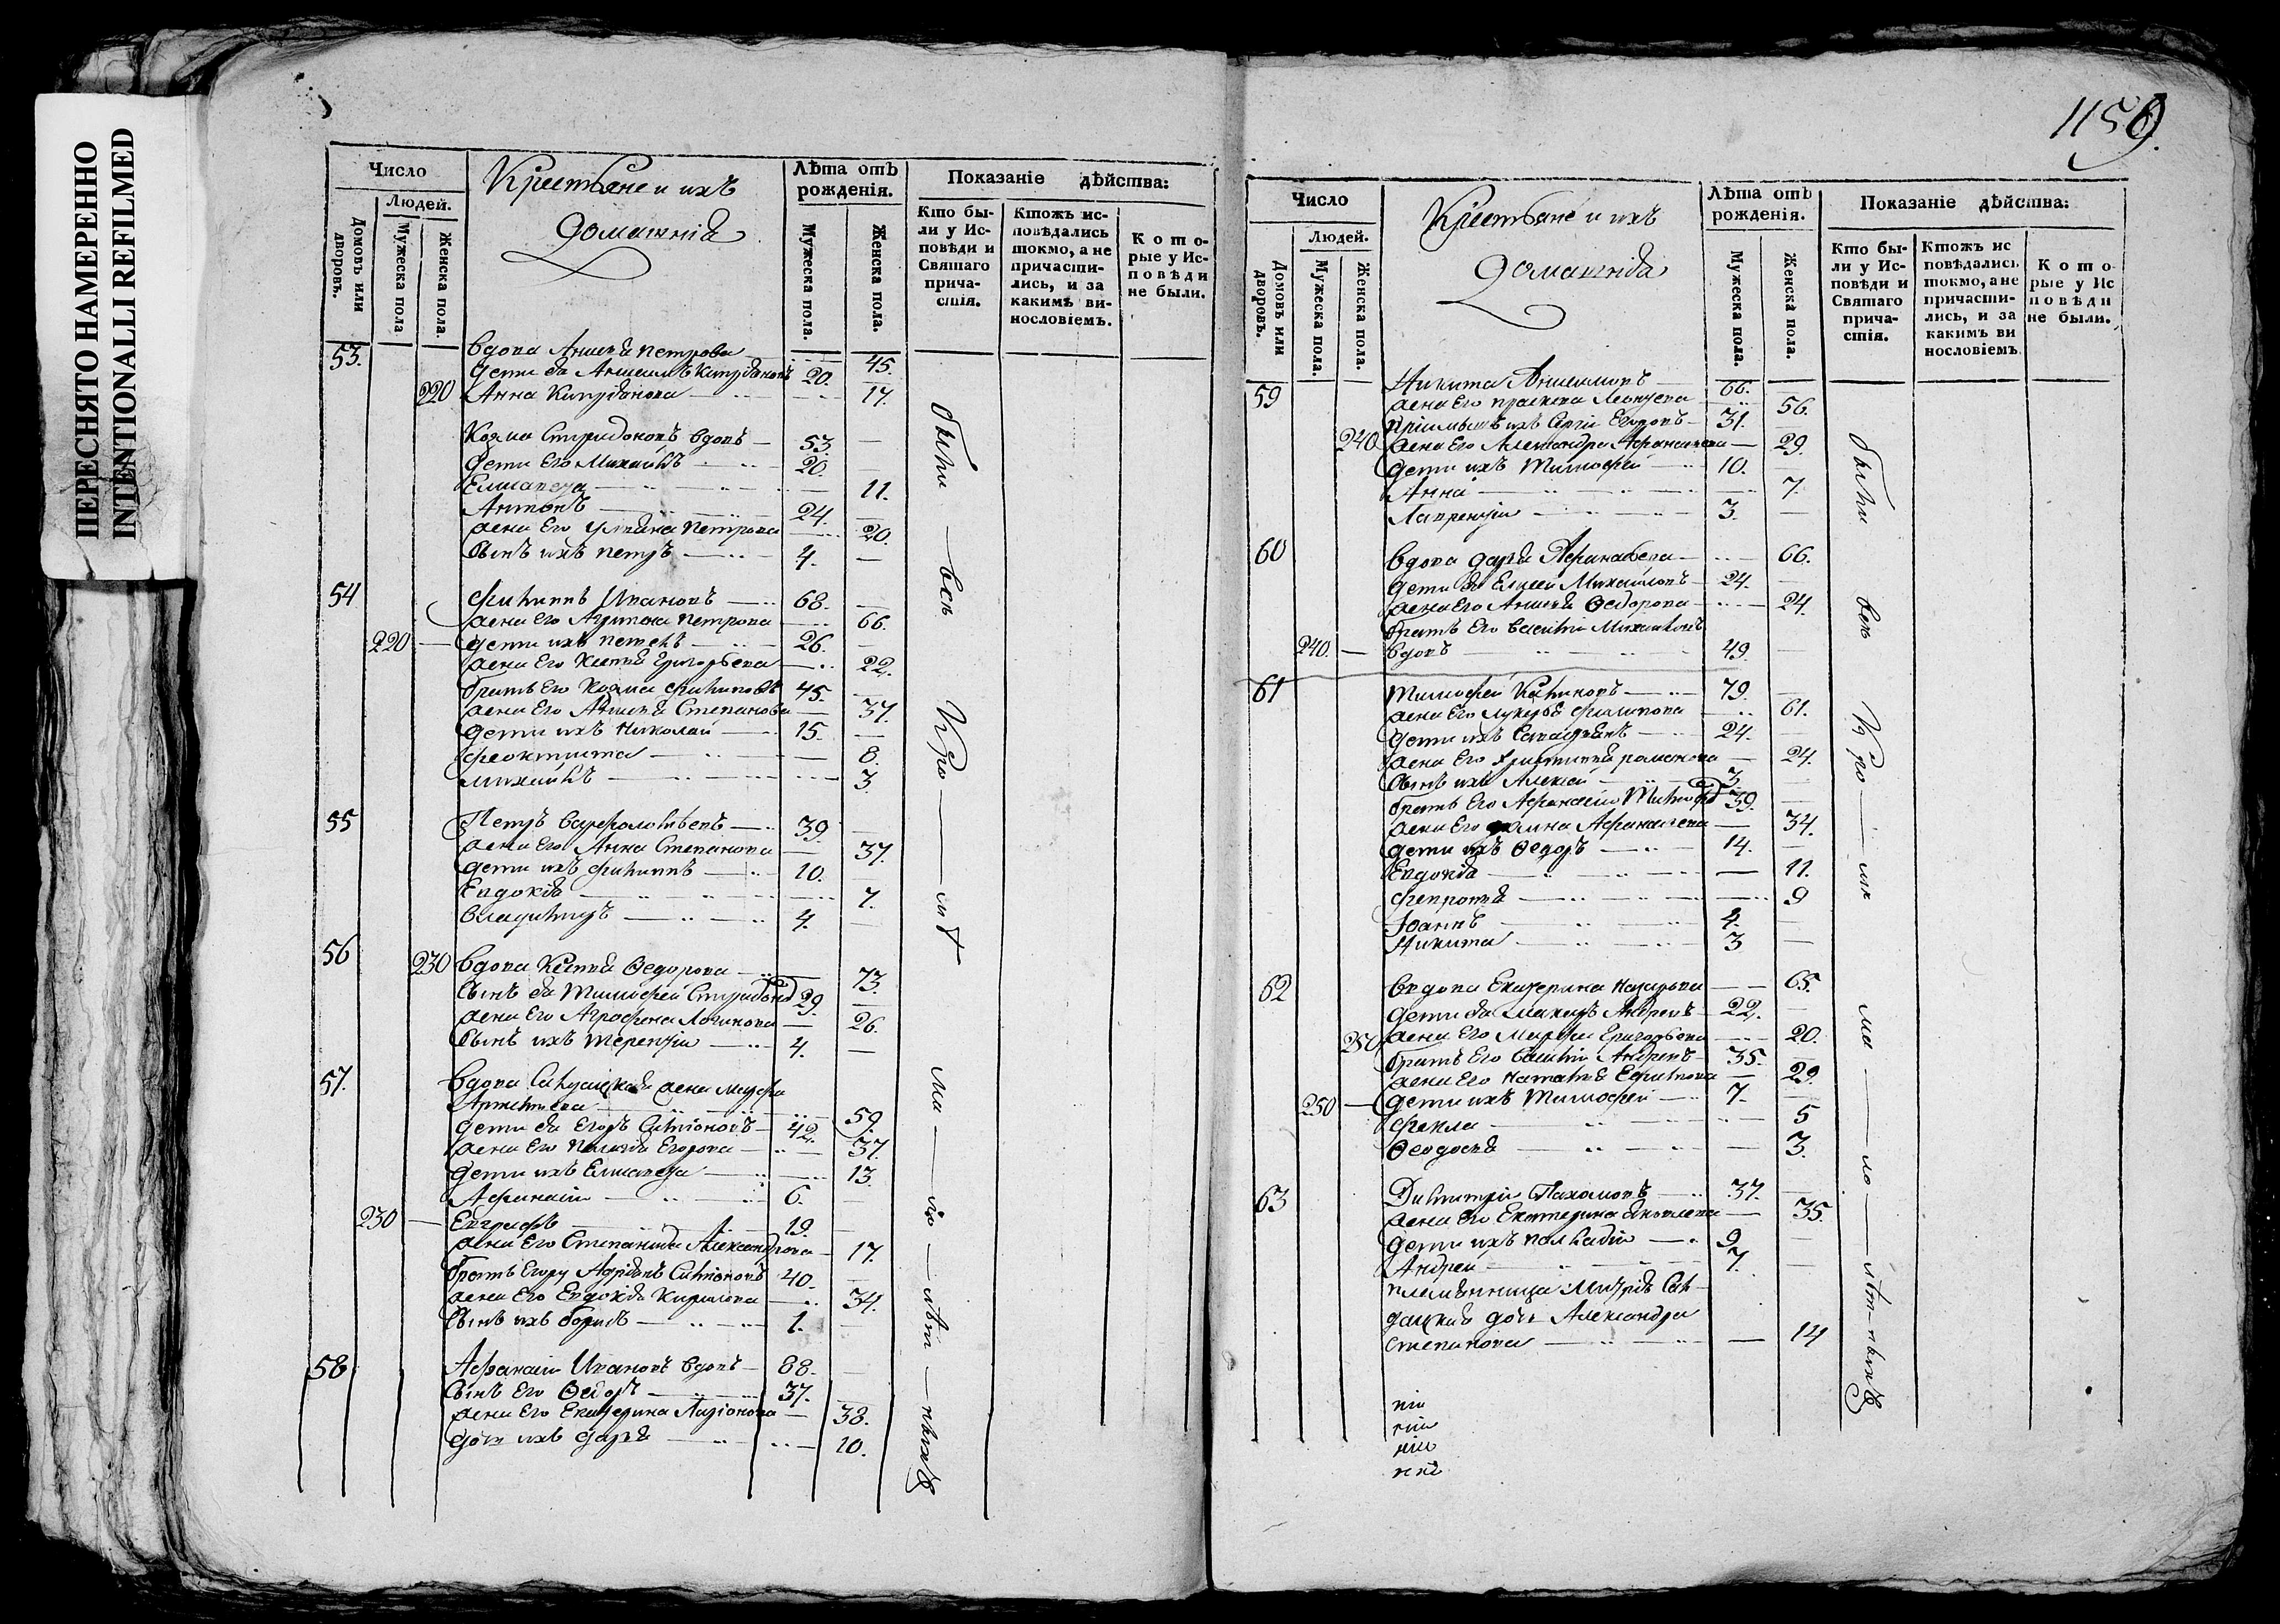 ПЕРЕСНЯТО НАМЕРЕННО
INTENTIONALLI REFILMED
Число
Крестьяне и ихъ
домашнія
Лѣта отъ рожденія.
Показаніе дѣйства:
Людей.
Домовъ или дворовъ.
Мужеска пола
Женска пола.
Мужеска пола.
Женска пола.
Кто бы-
ли у Ис-
повѣди и
Святаго
прича-
стія.
Ктожъ ис-
повѣдались
токмо, а не
причасти-
лись, и за
какимъ ви-
нословіемъ.
К о т о-
рые у Ис-
п о в ѣ д и
не были.
53. вдова Анисья петрова 45.
дети ея Анисимъ Кипріановъ 20.
220 Анна Кипріанова 17.
Козма Спиридоновъ вдовъ 53.
дети Его Михаилъ 20.
Елисавета 11.
Антонъ 24.
жена Его Ульяна Петрова 20.
сынъ ихъ петръ 4.
54 филиппъ Ивановъ 68.
жена Его Агрипена петрова 66.
220 дети ихъ 26.
жена Его Ксенія григорьева 22.
братъ Его Козма филиповъ 45.
жена Его Анисья Степанова 37.
дети ихъ Николай 15.
феоктиста 8.
михаилъ 3
55 Петръ варфоломѣевъ 39.
жена Его Анна Степанова 37.
дети ихъ филиппъ 10.
Евдокія 7.
владимиръ 4.
56 230 вдова Ксенія Ѳедорова 73.
сынъ ея Тимофей Спиридоновъ 29.
жена Его Аграфена Логинова 26.
сынъ ихъ терентій 4.
57. вдова Солдацкая жена марфа
59.
дети ея Егоръ 42.
жена Его Пелагея Егорова 37.
дети ихъ Елисавета 13.
Афанасій 6.
230 Евграфъ 19.
жена Его Степанида Александрова 17.
братъ Егору Адріанъ 40.
жена Его Евдокія Кирилова 34.
сынъ ихъ борисъ 1.
58 Афанасій Ивановъ вдовъ 88.
сынъ Его Ѳедоръ 37.
жена Его Екатерина Ларіонова 38.
дочь ихъ дарья 10.
были всѣ
1159.
Число
Крестьяне и ихъ
домашнія
Лѣта отъ рожденія.
Показаніе дѣйства:
Людей.
Домовъ или дворовъ.
Мужеска пола.
Женска пола.
Мужеска пола.
Женска пола.
Кто бы-
ли у Ис-
повѣди и
Святаго
прича-
стія.
Ктожъ ис
повѣдались
токмо, а не
причасти-
лись, и за
какимъ ви
нословіемъ
К о т о-
рые у Ис
п о в ѣ д и
не были.
59 Никита Анисимовъ 66.
жена Его праскева 56.
пріимышъ ихъ Сергій Егоровъ 31.
240 жена Его Александра Афанасьева 29.
дети ихъ Тимофей 10.
Анна 7.
Лаврентій 3.
60 вдова дарья Афанасьева 66.
дети ея Елисей Михайловъ 24.
жена Его Анисья Ѳедорова 24.
братъ Его василій Михайловъ
240. вдовъ 49.
61 тимофей 79.
жена Его лукерья филипова 61.
дети ихъ 24.
жена Его Христинья романова 24.
сынъ ихъ Алексей 3
братъ Его Афанасій Тимофеевъ 39.
жена Его Афанасьева 34.
дети ихъ Ѳедоръ 14.
Евдокія 11.
февронья 9
Іоаннъ 4.
Никита 3
62 вдова Екатерина Назарова 65.
дети ея Макаръ Андреевъ 22.
250 жена Его марфа Григорьева 20.
братъ Его василій Андреевъ 35.
жена Его Наталья Ефимова 29.
250 дети ихъ Тимофей 7.
фекла 5
Ѳеодосья 3.
63 Димитрій Пахомовъ 37.
жена Его Екатерина яковлева 35.
дети ихъ 9
Андрей 7.
племянница Сол-
дацкая дочь Александра
степанова 14
были всѣ